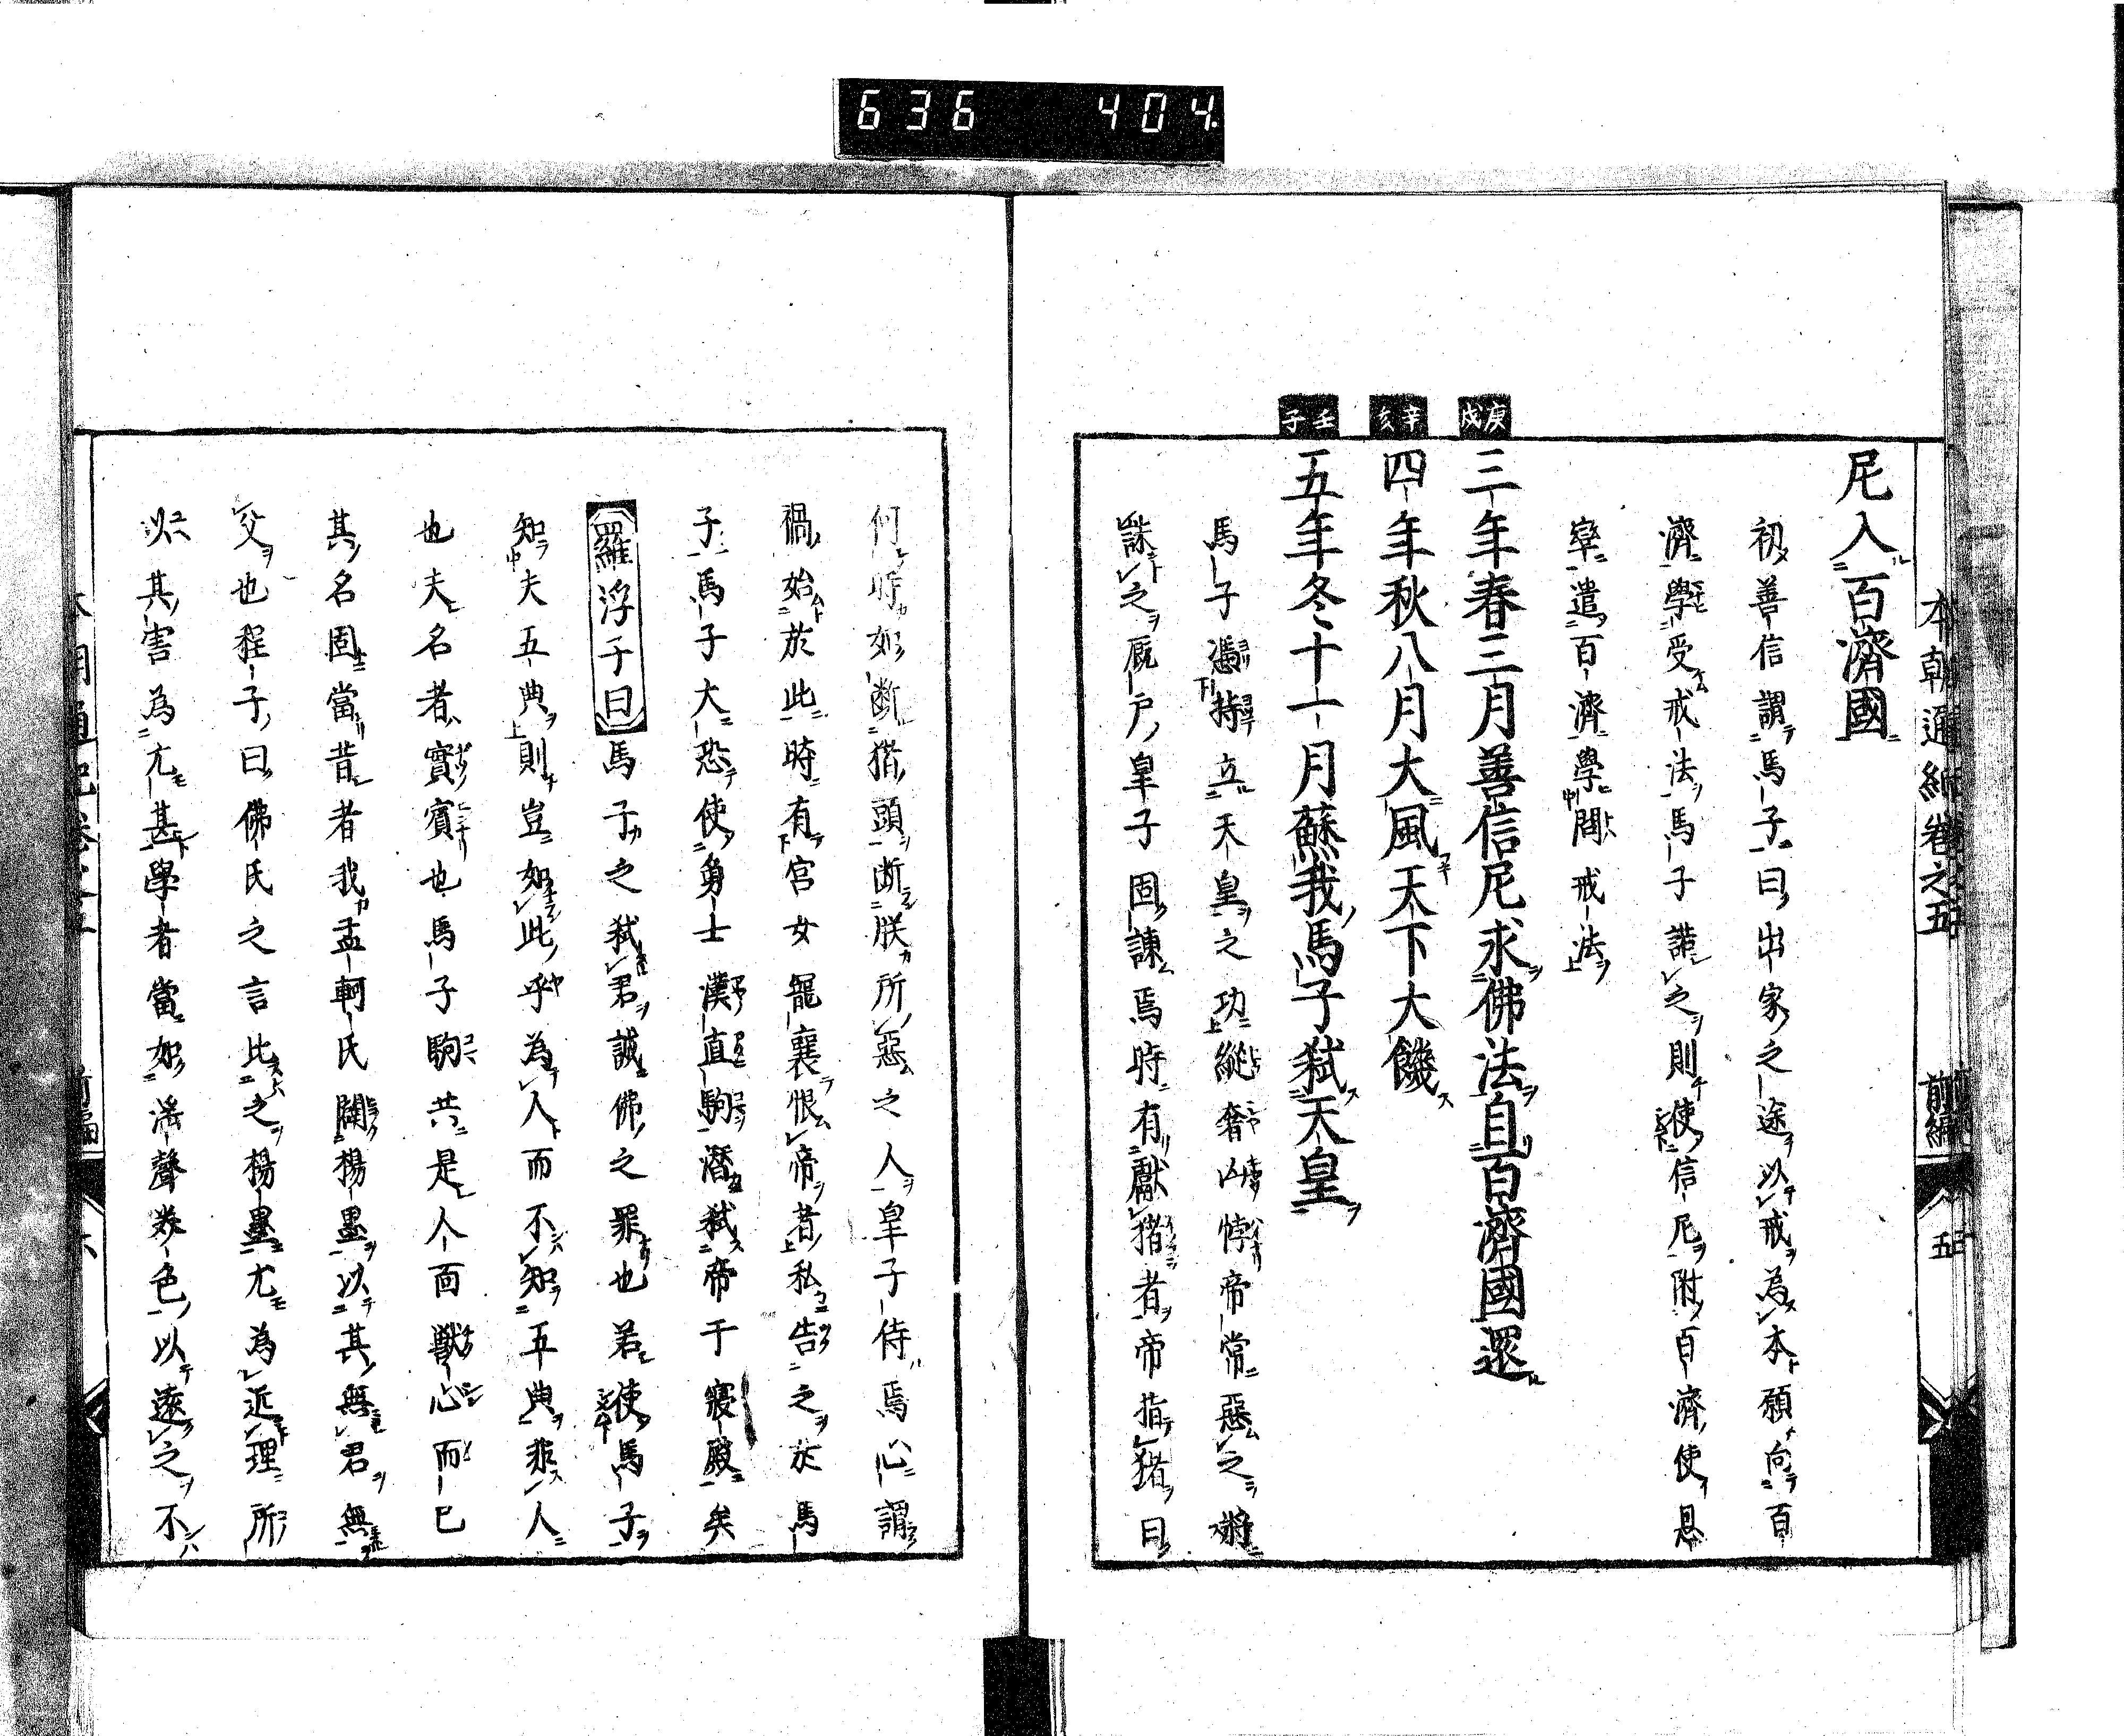 636 404
本朝通紀卷之五 前編 五
尼入百濟國
初善信謂馬子曰出家之途以戒為本願向百
濟學受戒法馬子諾之則使信尼附百濟使恩
率遣百濟學問戒法
庚戌
三年春三月善信尼求佛法自百濟國還
辛亥
四年秋八月大風天下大饑
壬子
五年冬十一月蘇我馬子弑天皇
馬子憑恃立天皇之功縱奢凶悖帝常惡之將
誅之厩戸皇子固諫焉時有獻猪者帝指猪曰
何時如斷猪頭斷朕所惡之人皇子侍焉心謂
禍始於此時有官女寵衰恨帝者私告之於馬
子馬子大恐使勇士漢直駒潛弑帝于寢殿矣
羅浮子曰馬子之弑君誠佛之罪也若使馬子
知夫五典則豈如此乎為人而不知五典非人
也夫名者實賓也馬子駒共是人面獸心而已
其名固當昔者我孟軻氏闢楊墨以其無君無
父也程子曰佛氏之言比之楊墨尤為近理所
以其害為尤甚學者當如淫聲美色以遠之不